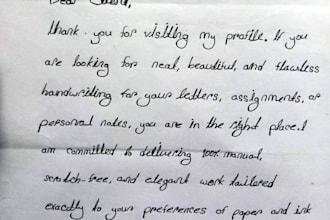 Dear
Thank you for visiting my profile. If you
are looking for neat, beautiful, and flawless
handwriting for your letters, assignments, or
personal notes, you are in the right place. I
am committed to delivering 100% manual,
scratch-free, and elegant work tailored
exactly to your preferences of paper and ink